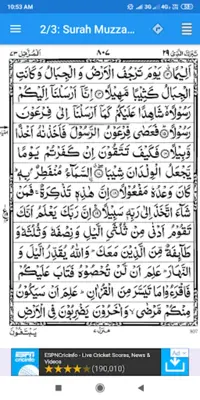 10:53 AM
2/3: Surah Muzza...
المزمل ٧٣
٨٠٧
تبٰرك الذی ٢٩
اَلِیْمًا یَوْمَ تَرْجُفُ الْاَرْضُ وَ الْجِبَالُ وَ كَانَتِ
الْجِبَالُ كَثِیْبًا مَّهِیْلًا اِنَّاۤ اَرْسَلْنَاۤ اِلَیْكُمْ
رَسُوْلًا شَاهِدًا عَلَیْكُمْ كَمَاۤ اَرْسَلْنَاۤ اِلٰى فِرْعَوْنَ
رَسُوْلًا فَعَصٰى فِرْعَوْنُ الرَّسُوْلَ فَاَخَذْنٰهُ اَخْذًا
وَّبِیْلًا فَكَیْفَ تَتَّقُوْنَ اِنْ كَفَرْتُمْ یَوْمًا
یَّجْعَلُ الْوِلْدَانَ شِیْبًا السَّمَآءُ مُنْفَطِرٌۢ بِهٖ
كَانَ وَعْدُهٗ مَفْعُوْلًا اِنَّ هٰذِهٖ تَذْكِرَةٌ فَمَنْ
شَآءَ اتَّخَذَ اِلٰى رَبِّهٖ سَبِیْلًا اِنَّ رَبَّكَ یَعْلَمُ اَنَّكَ
تَقُوْمُ اَدْنٰى مِنْ ثُلُثَیِ الَّیْلِ وَ نِصْفَهٗ وَ ثُلُثَهٗ وَ
طَآىِٕفَةٌ مِّنَ الَّذِیْنَ مَعَكَ وَ اللّٰهُ یُقَدِّرُ الَّیْلَ وَ
النَّهَارَ عَلِمَ اَنْ لَّنْ تُحْصُوْهُ فَتَابَ عَلَیْكُمْ
فَاقْرَءُوْا مَا تَیَسَّرَ مِنَ الْقُرْاٰنِ عَلِمَ اَنْ سَیَكُوْنُ
مِنْكُمْ مَّرْضٰى وَ اٰخَرُوْنَ یَضْرِبُوْنَ فِی الْاَرْضِ
یَبْتَغُوْنَ
ESPNCricinfo - Live Cricket Scores, News & Videos
(190,010)
Ad